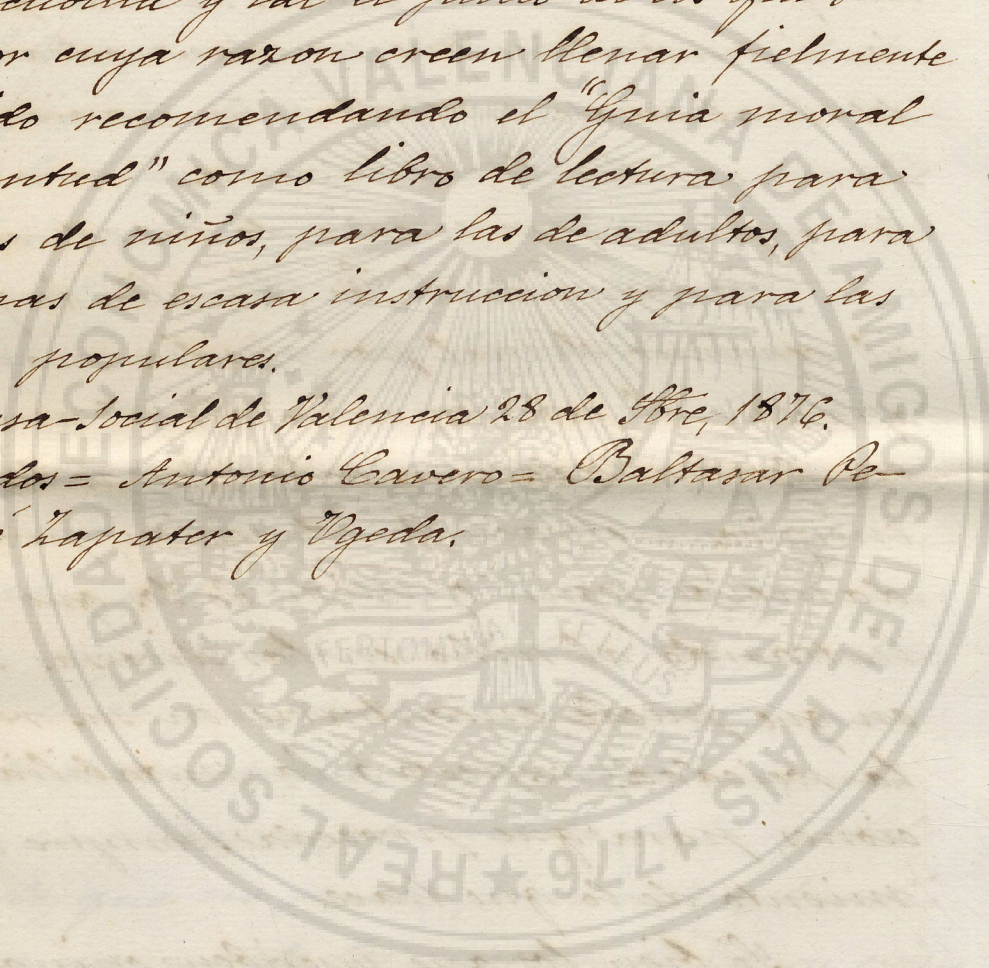 y tal el
or cuya razon creen llenar fielmente
do recomendando el "Guia moral
ntud" como libro de lectura para
s de niños, para las de adultos, para
nas de escasa instruccion y para las
populares.
sa-Social de Valencia 28 de Sbre, 1876.
dos = Antonio Cavero = Baltasar Pe-
Zapater y Ugeda.
REAL SOCIEDAD ECONOMICA VALENCIANA DE AMIGOS DEL PAIS 1776 ★
FERT OMNIA TELLUS